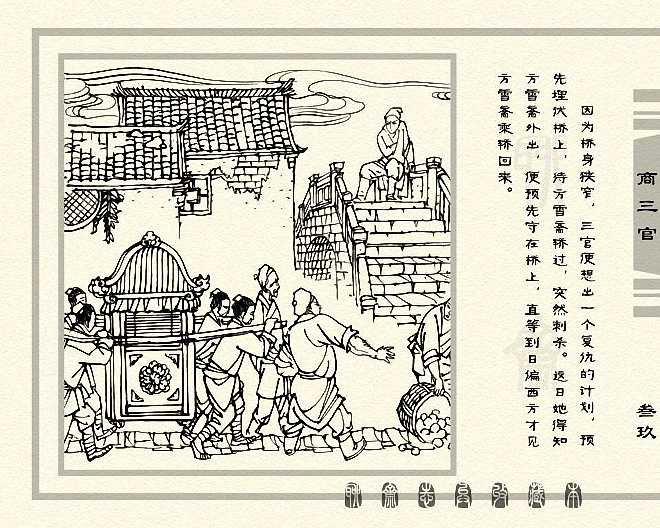 因为桥身狭窄，三官便想出一个复仇的计划，预
先埋伏桥上，待方雪斋轿过，突然刺杀。这日她得知
方雪斋外出，便预先守在桥上，直等到日偏西方才见
方雪斋乘轿回来。
商三官
叁玖